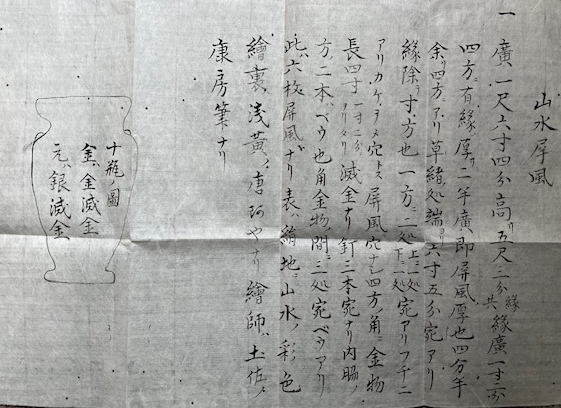 山水屏風
一 廣一尺六寸四分高サ五尺三分縁共縁廣一寸二分
四方ニ有縁厚サ二分半廣即屏風厚也四分半
余リ四方ニアリ草緒処端ヨリ六寸五分宛アリ
縁除テ寸方也一方ニ二処上ニ一処下ニ一処宛アリフチニ
アリカケヲメ穴トス屏風穴ナシ四方ノ角ニ金物
長四寸一寸二分ヲリタリ滅金ナリ釘三本宛ナリ内脇ノ
方ニ二本ベウ也角金物ノ間ニ三処宛ベウアリ
此ハ六枚屏風ナリ表ハ絹地ニ山水ノ彩色
繪裏ハ浅黄ノ唐アヤナリ繪師ハ土佐ノ
康房筆ナリ
十瓶ノ圖
金ハ金滅金
元ハ銀滅金